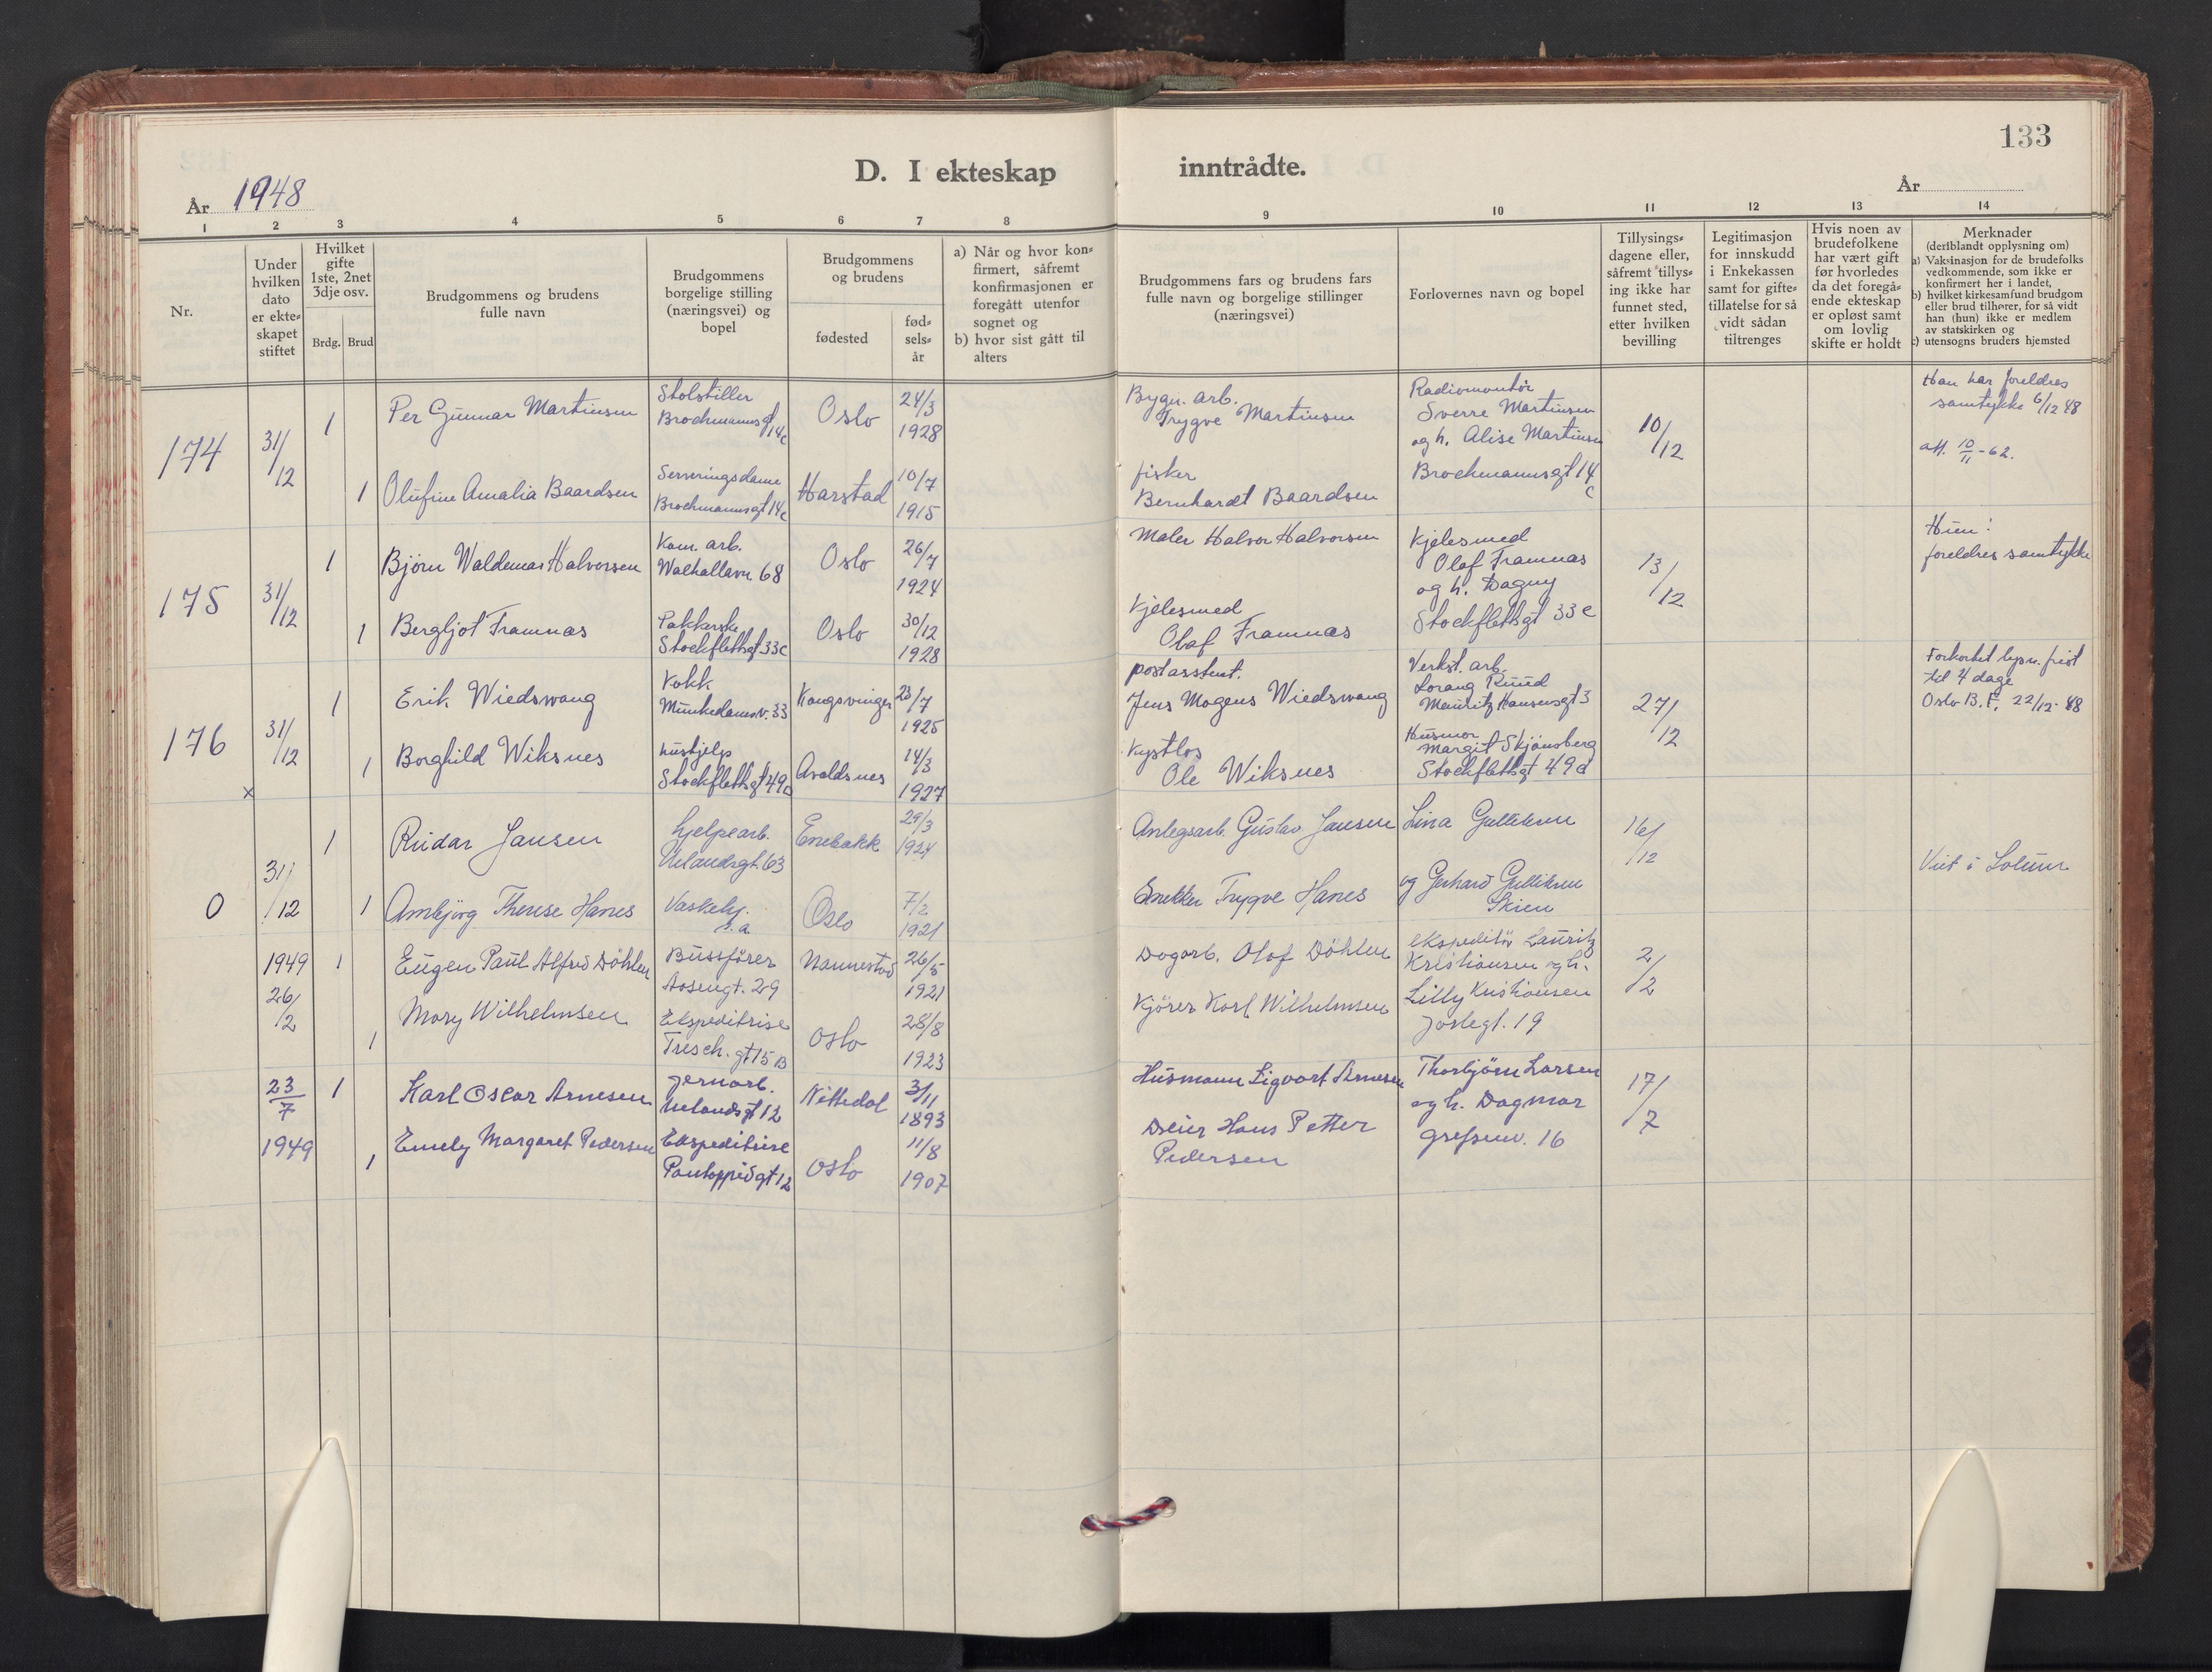 133
D. I ekteskap inntrådte.
År 1948
År
1 2 3 4 5 6 7 8 9 10 11 12 13 14
Nr.
Under
hvilken
dato
er ekte-
skapet
stiftet
Hvilket
gifte
1ste, 2net
3dje osv.
Brdg. Brud
Brudgommens og brudens
fulle navn
Brudgommens
borgelige stilling
(næringsvei) og
bopel
Brudgommens
og brudens
fødested
fød-
sels-
år
a) Når og hvor kon-
firmert, såfremt
konfirmasjonen er
foregått utenfor
sognet og
b) hvor sist gått til
alters
Brudgommens fars og brudens fars
fulle navn og borgelige stillinger
(næringsvei)
Forlovernes navn og bopel
Tillysings-
dagene eller,
såfremt tillys-
ing ikke har
funnet sted,
etter hvilken
bevilling
Legitimasjon
for innskudd
i Enkekassen
samt for gifte-
tillatelse for så
vidt sådan
tiltrenges
Hvis noen av
brudefolkene
har vært gift
før hvorledes
da det foregå-
ende ekteskap
er opløst samt
om lovlig
skifte er holdt
Merknader
(deriblandt opplysning om)
a) Vaksinasjon for de brudefolks
vedkommende, som ikke er
konfirmert her i landet,
b) hvilket kirkesamfund brudgom
eller brud tilhører, for så vidt
han (hun) ikke er medlem
av statskirken og
c) utensogns bruders hjemsted
174
31/12
1
Per Gunnar Martinsen
Stolstiller
Brochmannsgt 14c
Oslo
24/3
1928
Bygn. arb.
Trygve Martinsen
Radiomontör
Sverre Martinsen
og h. Alise Martinsen
Brochmannsgt 14
c
10/12
Han har foreldres
samtykke 6/12 48
att. 10/11 - 62.
1
Olufine Amalia Baardsen
Serveringsdame
Brochmannsgt 14c
Harstad
10/7
1915
fisker
Bernhardt Baardsen
175
31/12
1
Björn Waldemar Halvorsen
Kom. arb.
Walhallavn. 68
Oslo
26/7
1924
Maler Halvor Halvorsen
Kjelesmed
Olaf Framnæs
og h. Dagny
Stockflethsgt 33c
13/12
Hun:
foreldres samtykke
1
Bergljot Framnæs
Pakkerske
Stockflethsgt 33c
Oslo
30/12
1928
Kjelesmed
Olaf Framnæs
176
31/12
1
Erik Wiedswang
Kokk
Munkedamsv. 33
Kongsvinger
23/7
1925
postasstent.
Jens Mogens Wiedswang
Verkst. arb.
Lorang Ruud
Mauritz Hansensgt 3
27/12
Forkortet lysn. frist
til 4 dage
Oslo B.F. 22/12-48
1
Borghild Wiksnes
hushjelp
Stockflethsgt 49a
Avaldsnes
14/3
1927
Kystlos
Ole Wiksnes
Husmor
Margit Skjönsberg
Stockflethsgt 49a
x
0
31/12
1
Reidar Jansen
hjelpearb.
Uelandsgt. 63
Enebakk
29/3
1924
Anlegsarb. Gustav Jansen
Lina Gulliksen
16/12
1
Arnbjörg Therese Hanes
Vaskehj.
s. a
Oslo
7/2
1921
Snekker Trygve Hanes
og Gerhard Gulliksen
Skien
Viet i Solum
1949
26/2
1
Eugen Paul Alfred Döhlen
Bussförer
Åsengt. 29
Nannestad
26/5
1921
Dagarb. Olaf Döhlen
Ekspeditör Lauritz
Kristiansen og h.
Lilly Kristiansen
Joslegt. 19
2/2
1
Mary Wilhelmsen
Ekspeditrise
Tresch. gt 15 B
Oslo
28/8
1923
Kjörer Karl Wilhelmsen
23/7
1949
1
Karl Oscar Arnesen
Jernarb.
Uelandsgt 12
Nittedal
3/11
1893
Husmann Sigvart Arnesen
Thorbjörn Larsen
og h. Dagmar
Grefsenv. 16
17/7
1
Emely Margaret Pedersen
Ekspeditrise
Pontoppidgt 12
Oslo
11/8
1907
Dreier Hans Petter
Pedersen